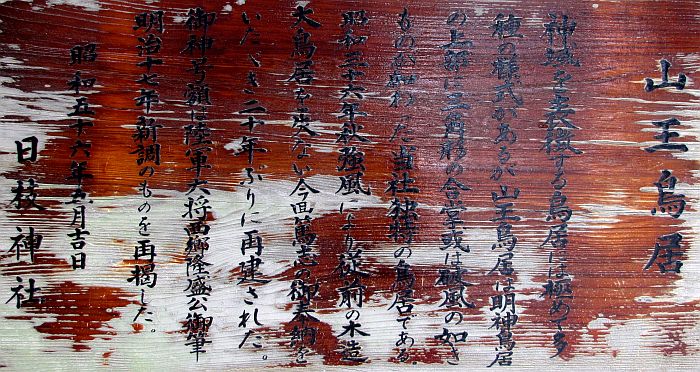 山王鳥居
神域を表徴する鳥居には極めて多
種の様式があるが山王鳥居は明神鳥居
の上部に三角形の合掌或は破風の如き
ものが加わった当社独特の鳥居である。
昭和三十六年秋強風により従前の木造
大鳥居を失ない今回篤志の御奉納を
いただき二十年ぶりに再建された。
御神号額は陸軍大将西郷隆盛公御筆
明治十七年新調のものを再掲した。
昭和五十六年 月吉日
日枝神社